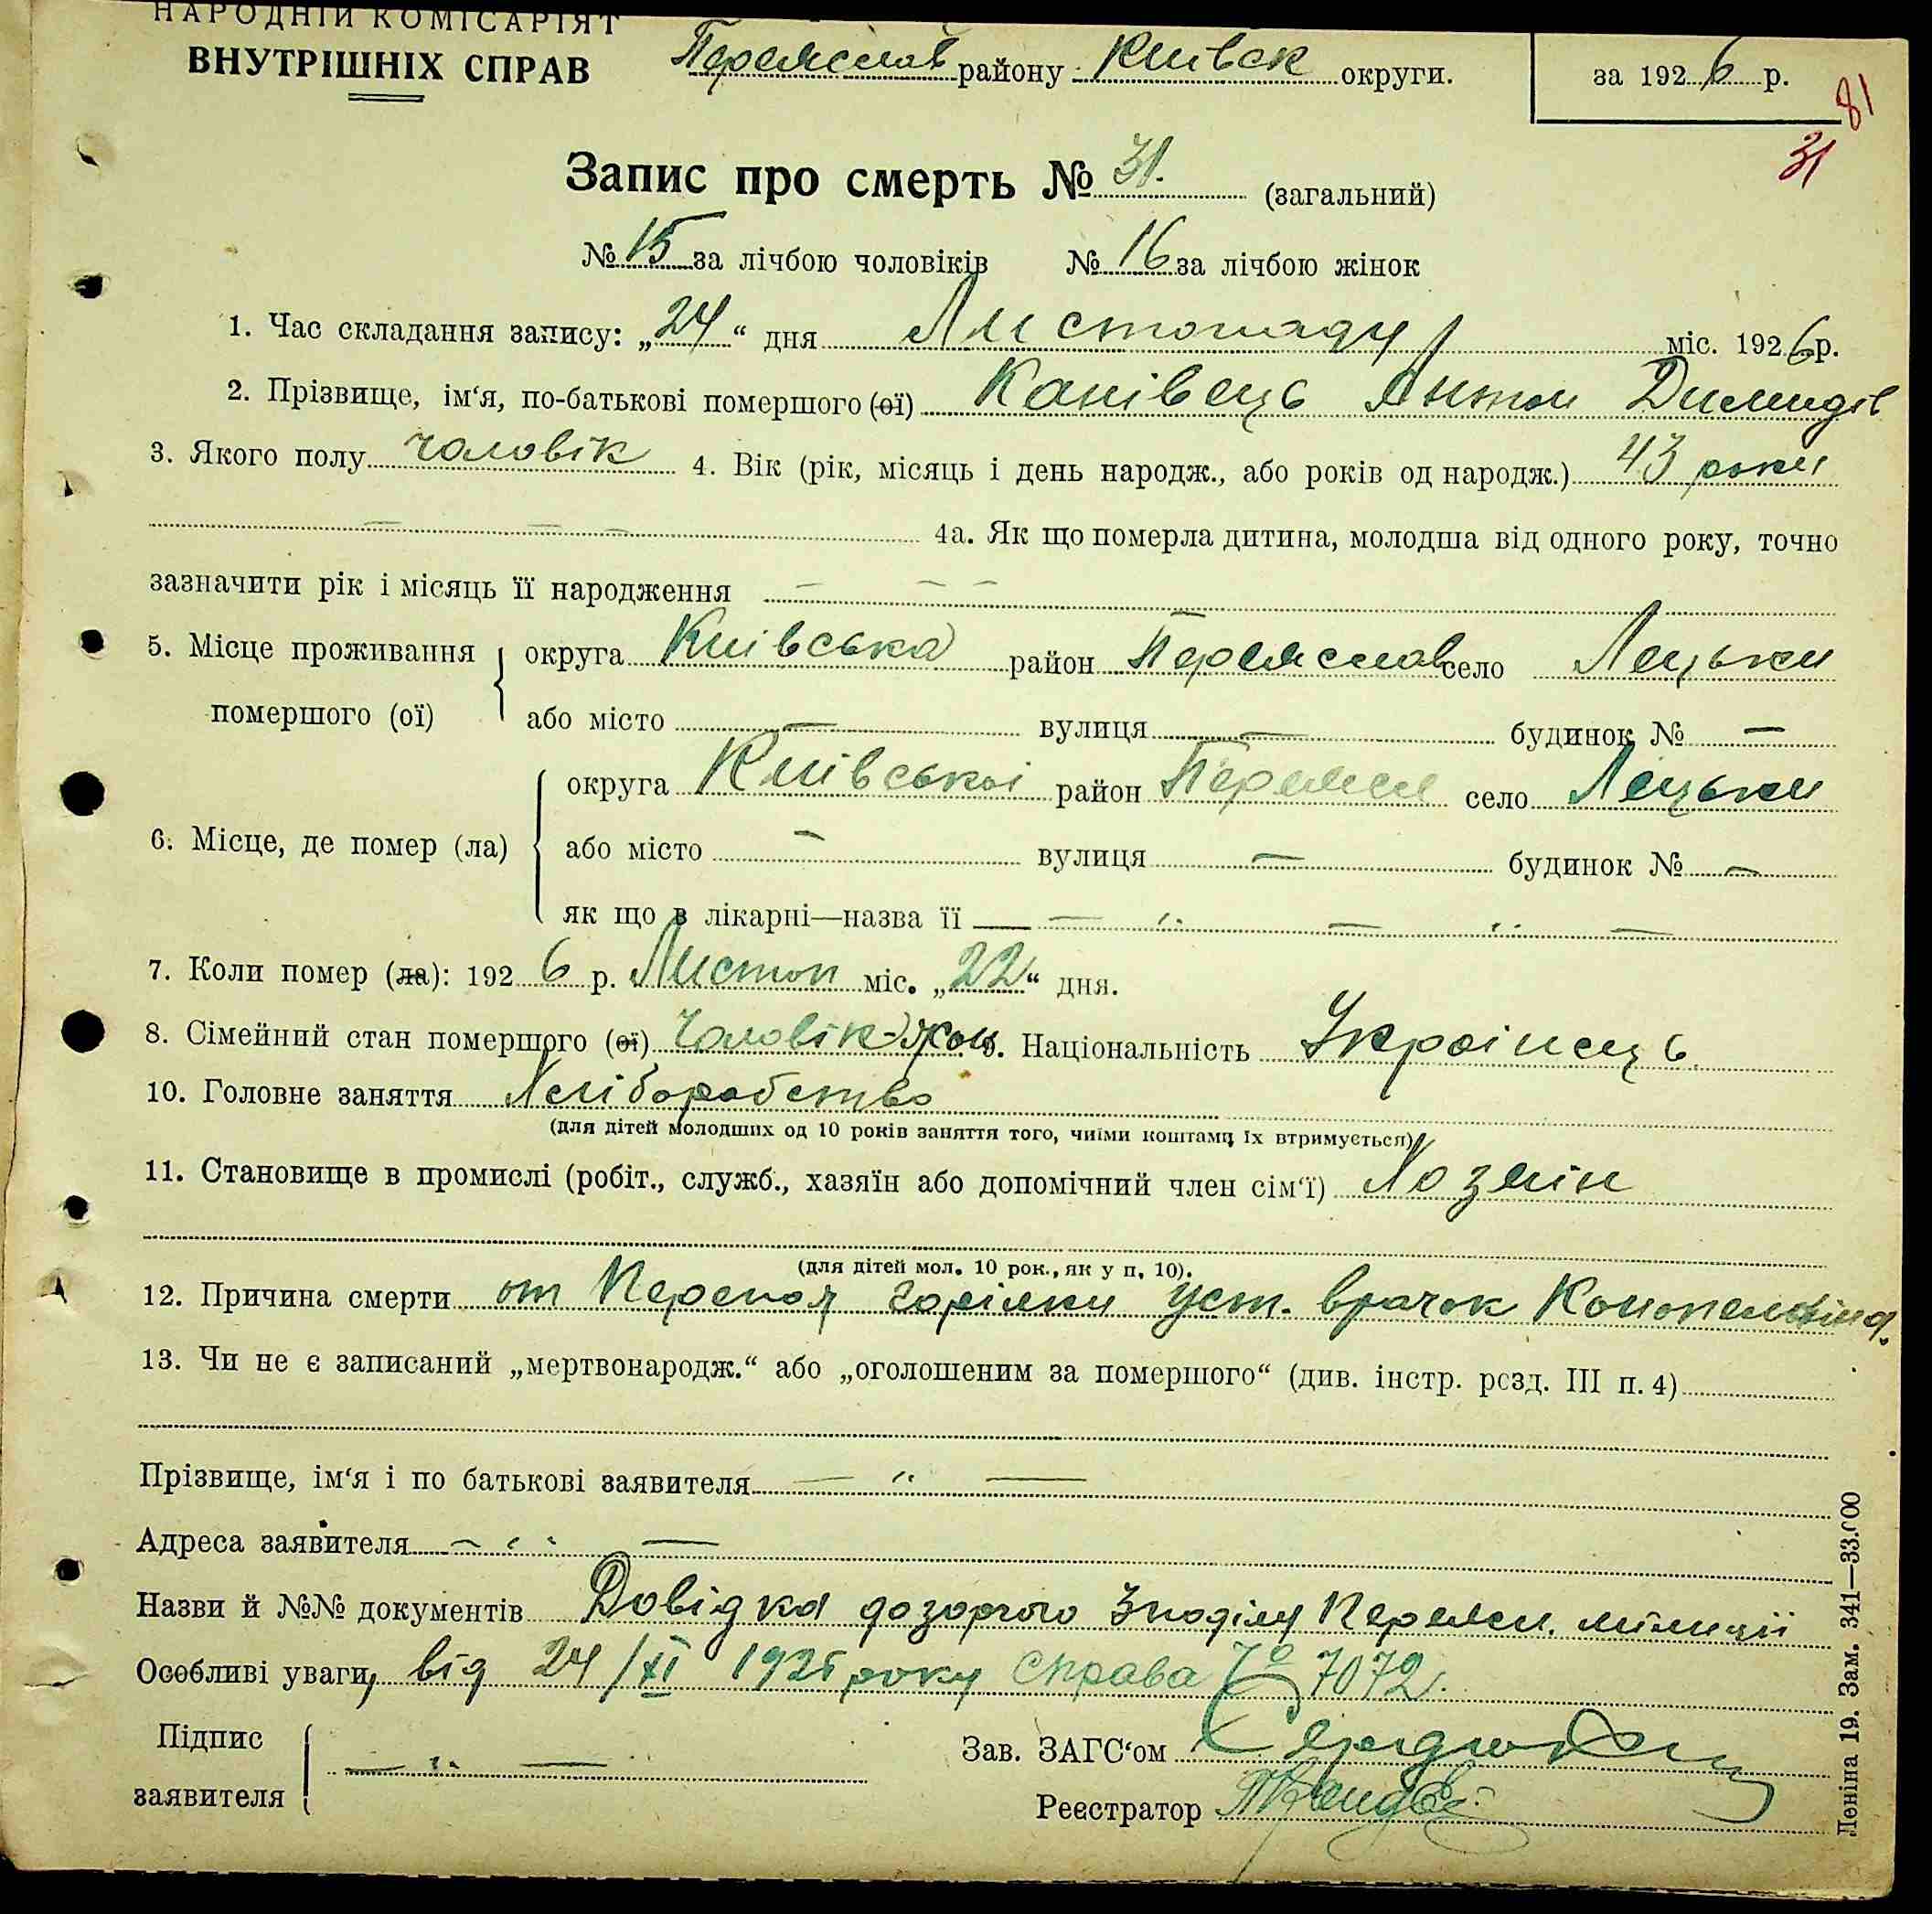 НАРОДНІЙ КОМІСАРІЯТ
ВНУТРІШНІХ СПРАВ
Переяслав району Київск округи.
за 1926 р.
81
31
Запис про смерть № 31. (загальний)
№ 15 за лічбою чоловіків № 16 за лічбою жінок
1. Час складання запису: „24“ дня Листопаду міс. 1926 р.
2. Прізвище, ім‘я, по-батькові помершого (ої) Канівець Антон
3. Якого полу чоловік 4. Вік (рік, місяць і день народж., або років од народж.) 43 роки
— — — 4а. Як що померла дитина, молодша від одного року, точно
зазначити рік і місяць її народження — — —
5. Місце проживання помершого (ої) округа Київська район Переяслав село Лецьки
або місто — вулиця — будинок № —
6. Місце, де помер (ла) округа Київської район Переясл село Лецьки
або місто — вулиця — будинок № —
як що в лікарні—назва її — — „ — „ —
7. Коли помер (ла): 1926 р. Листоп міс. „22“ дня.
8. Сімейний стан помершого (ої) Чоловік 9. Національність Українець.
10. Головне заняття Хліборобство
(для дітей молодших од 10 років заняття того, чиїми коштами їх втримується)
11. Становище в промислі (робіт., служб., хазяїн або допомічний член сім‘ї) Хозяін
(для дітей мол. 10 рок., як у п. 10).
12. Причина смерти от Перепоя горілки уст. врачок
13. Чи не є записаний „мертвонародж.“ або „оголошеним за помершого“ (див. інстр. розд. III п. 4)
Прізвище, ім‘я і по батькові заявителя — „ —
Адреса заявителя — „ —
Назви й №№ документів Довідка дозорчого Переясл. міліції
Особливі уваги, від 24/XI 1926 року справа № 7072.
Підпис заявителя — „ —
Зав. ЗАГС‘ом
Реєстратор
Леніна 19. Зам. 341—33.000